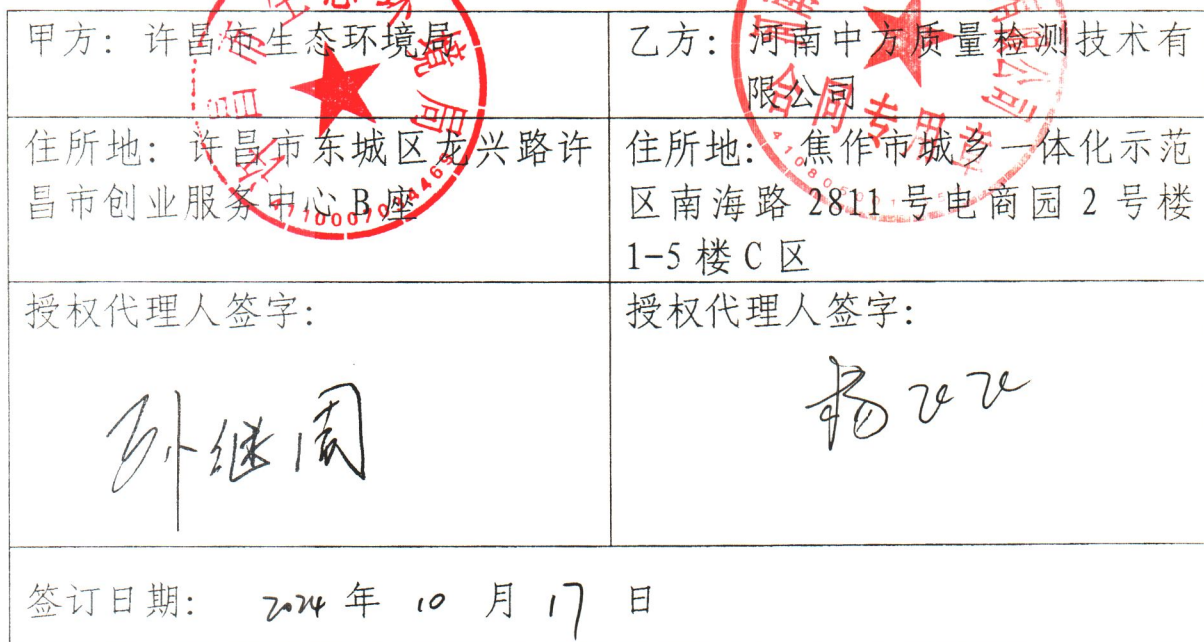 甲方：许昌市生态环境局
乙方：河南中方质量检测技术有
限公司
住所地：许昌市东城区龙兴路许
昌市创业服务中心 B 座
住所地：焦作市城乡一体化示范
区南海路 2811 号电商园 2 号楼
1-5 楼 C 区
授权代理人签字：
孙继周
授权代理人签字：
签订日期： 2024 年 10 月 17 日
合同专用章